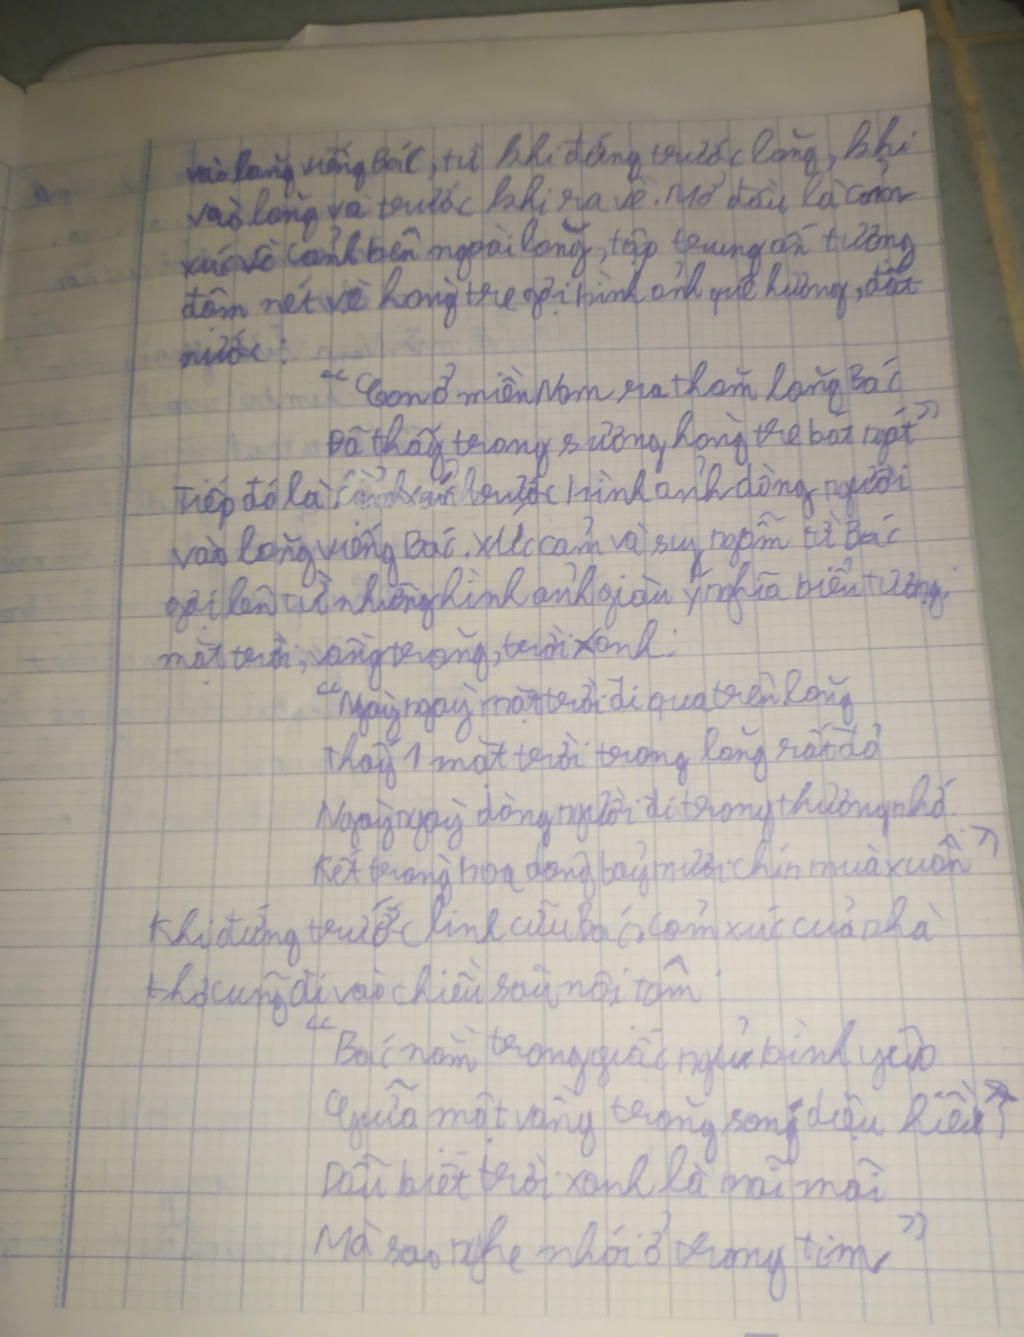 vào lăng viếng Bác, từ khi đứng trước lăng, khi
vào lăng và trước khi ra về. Mở đầu là cảm
xúc về cảnh bên ngoài lăng, tập trung ấn tượng
đậm nét về hàng tre gợi hình ảnh quê hương, đất
nước:
"Con ở miền Nam ra thăm lăng Bác
Đã thấy trong sương hàng tre bát ngát"
Tiếp đó là cảm xúc trước hình ảnh dòng người
vào lăng viếng Bác. Xúc cảm và suy ngẫm từ Bác
gợi lên từ những hình ảnh giàu ý nghĩa biểu tượng:
mặt trời, vầng trăng, trời xanh:
"Ngày ngày mặt trời đi qua trên lăng
Thấy 1 mặt trời trong lăng rất đỏ
Ngày ngày dòng người đi trong thương nhớ
Kết tràng hoa dâng bảy mươi chín mùa xuân"
Khi đứng trước linh cữu Bác, cảm xúc của nhà
thơ cũng đi vào chiều sâu nội tâm:
"Bác nằm trong giấc ngủ bình yên
Giữa một vầng trăng sáng dịu hiền
Dẫu biết trời xanh là mãi mãi
Mà sao nghe nhói ở trong tim"